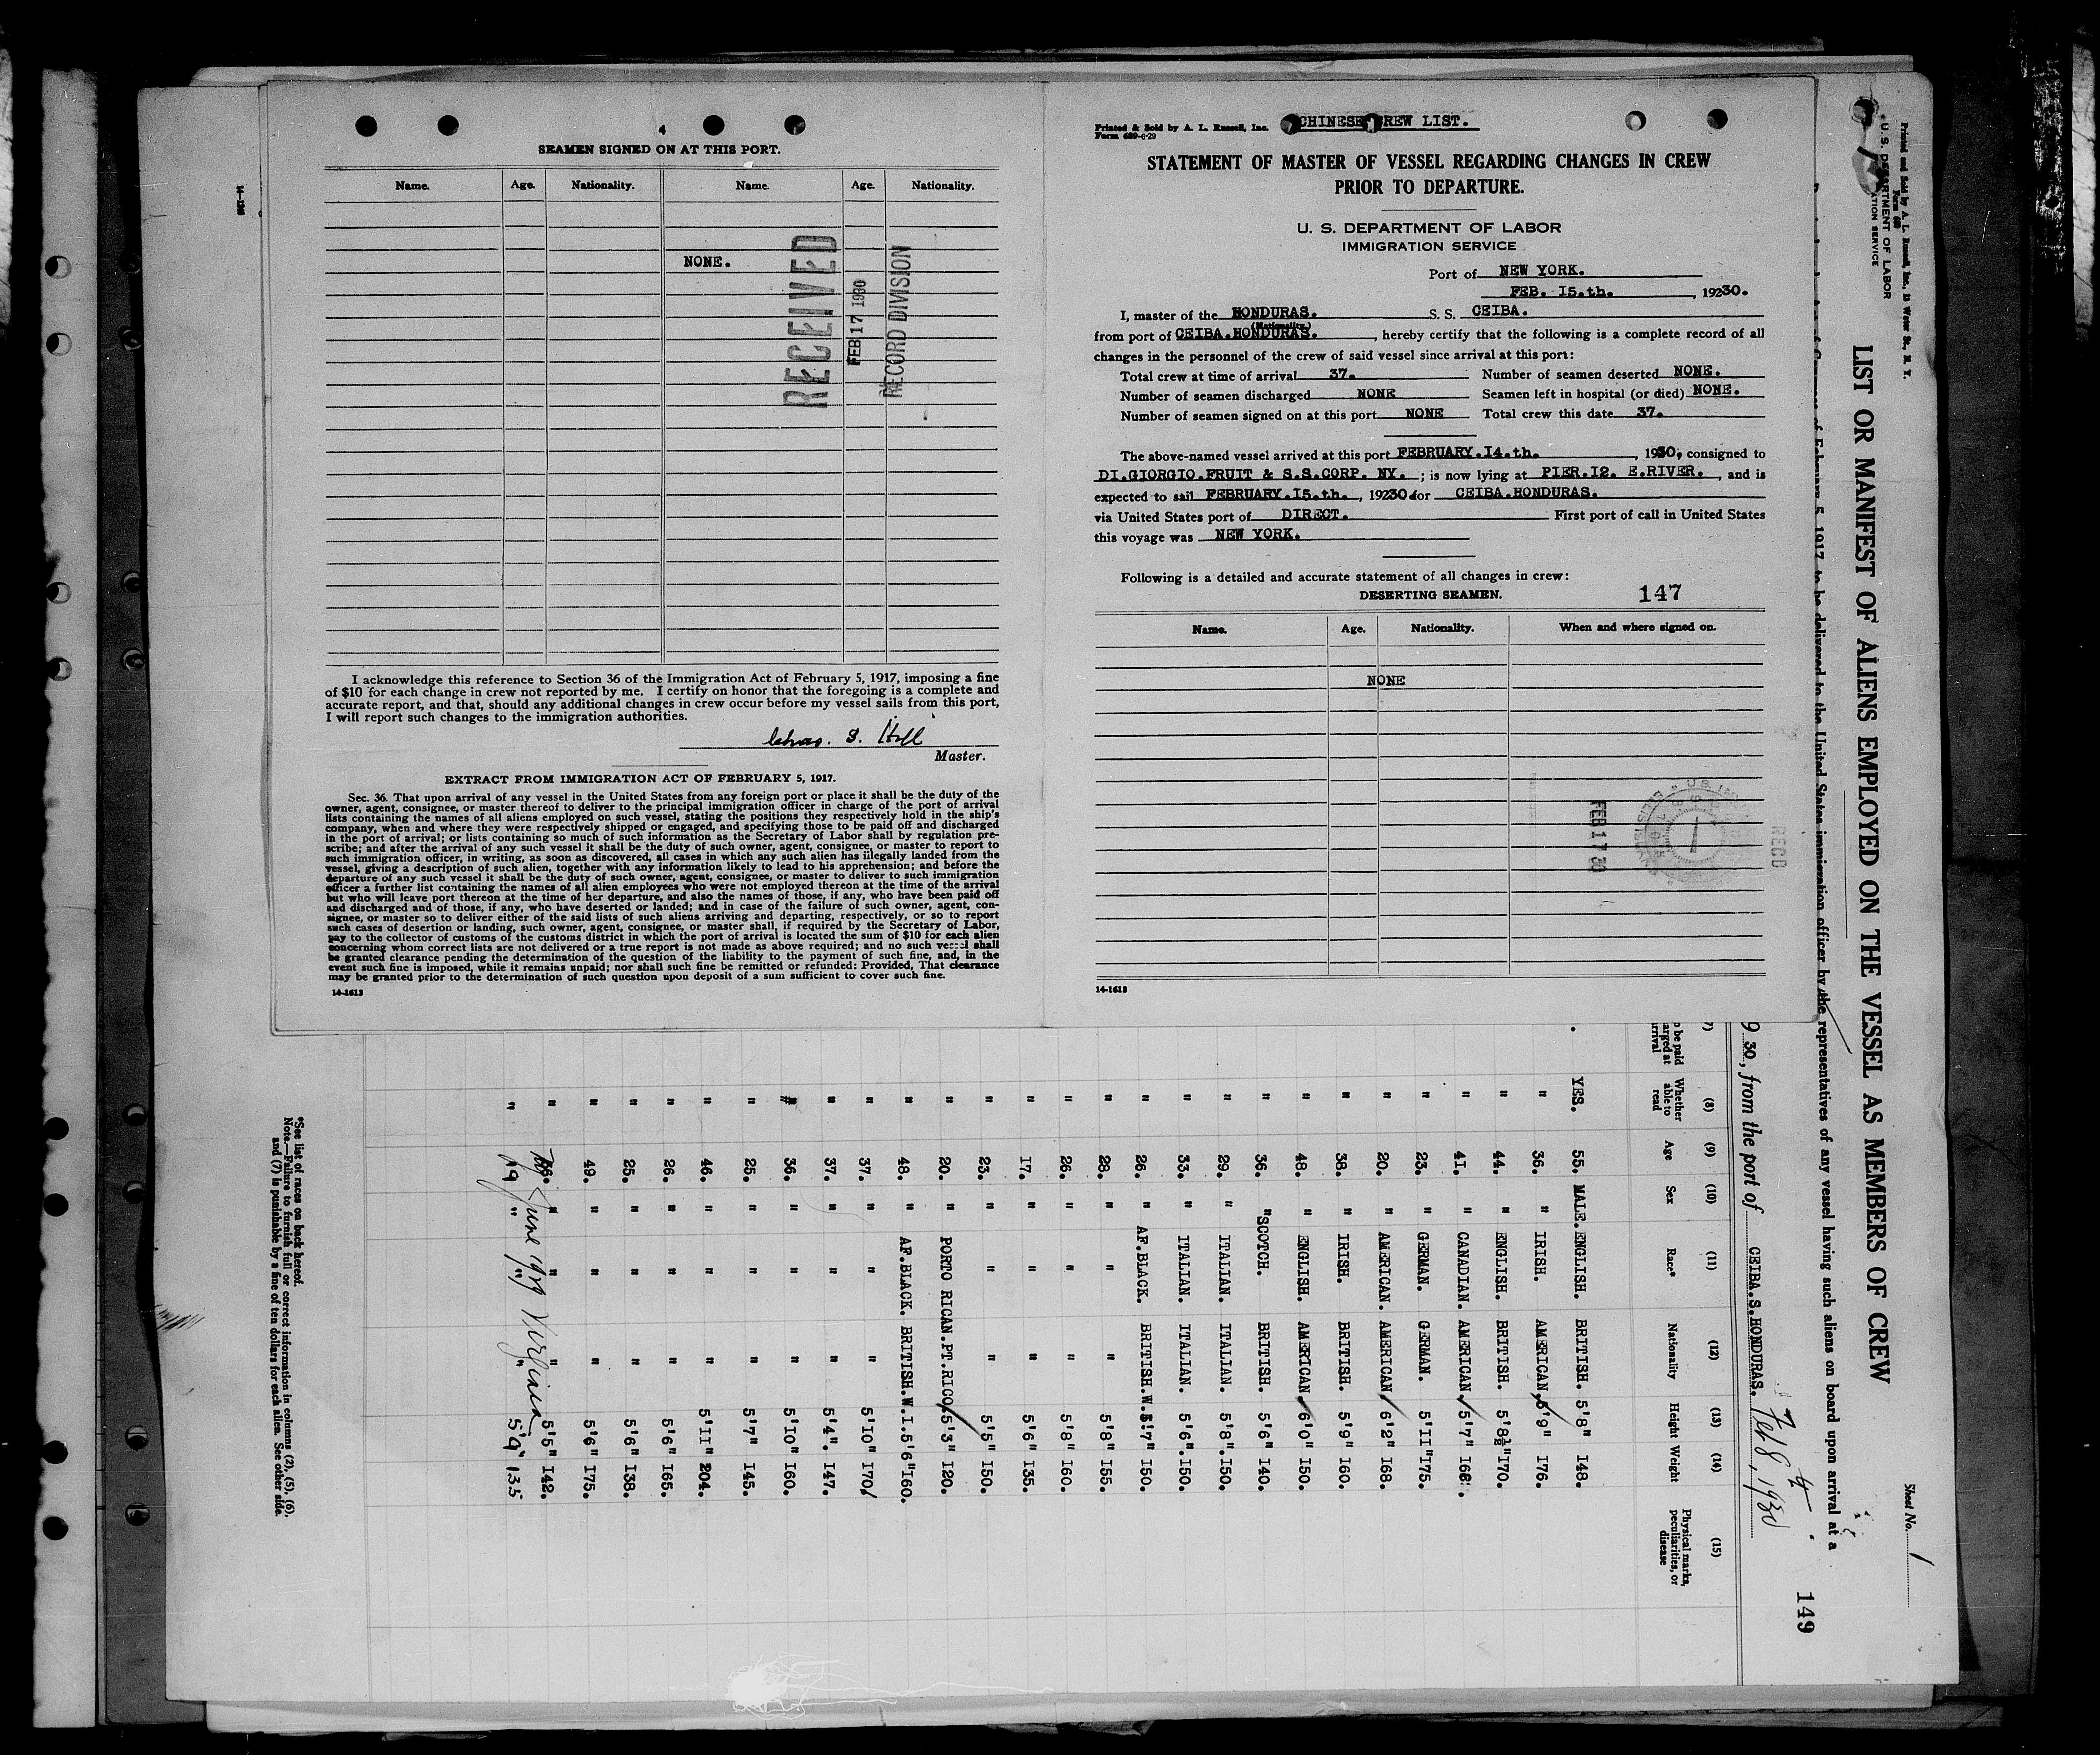 4
SEAMEN SIGNED ON AT THIS PORT.
Name. Age. Nationality. Name. Age. Nationality.
NONE.
RECEIVED
FEB 17 1930
RECORD DIVISION
I acknowledge this reference to Section 36 of the Immigration Act of February 5, 1917, imposing a fine
of $10 for each change in crew not reported by me. I certify on honor that the foregoing is a complete and
accurate report, and that, should any additional changes in crew occur before my vessel sails from this port,
I will report such changes to the immigration authorities.
Chas. S. Hill
Master.
EXTRACT FROM IMMIGRATION ACT OF FEBRUARY 5, 1917.
Sec. 36. That upon arrival of any vessel in the United States from any foreign port or place it shall be the duty of the
owner, agent, consignee, or master thereof to deliver to the principal immigration officer in charge of the port of arrival
lists containing the names of all aliens employed on such vessel, stating the positions they respectively hold in the ship's
company, when and where they were respectively shipped or engaged, and specifying those to be paid off and discharged
in the port of arrival; or lists containing so much of such information as the Secretary of Labor shall by regulation pre-
scribe; and after the arrival of any such vessel it shall be the duty of such owner, agent, consignee, or master to report to
such immigration officer, in writing, as soon as discovered, all cases in which any such alien has illegally landed from the
vessel, giving a description of such alien, together with any information likely to lead to his apprehension; and before the
departure of any such vessel it shall be the duty of such owner, agent, consignee, or master to deliver to such immigration
officer a further list containing the names of all alien employees who were not employed thereon at the time of the arrival
but who will leave port thereon at the time of her departure, and also the names of those, if any, who have been paid off
and discharged and of those, if any, who have deserted or landed; and in case of the failure of such owner, agent, con-
signee, or master so to deliver either of the said lists of such aliens arriving and departing, respectively, or so to report
such cases of desertion or landing, such owner, agent, consignee, or master shall, if required by the Secretary of Labor,
pay to the collector of customs of the customs district in which the port of arrival is located the sum of $10 for each alien
concerning whom correct lists are not delivered or a true report is not made as above required; and no such vessel shall
be granted clearance pending the determination of the question of the liability to the payment of such fine, and, in the
event such fine is imposed, while it remains unpaid; nor shall such fine be remitted or refunded: Provided, That clearance
may be granted prior to the determination of such question upon deposit of a sum sufficient to cover such fine.
14-1613
Printed & Sold by A. L. Russell, Inc.
Form 689-6-29
CHINESE CREW LIST.
STATEMENT OF MASTER OF VESSEL REGARDING CHANGES IN CREW
PRIOR TO DEPARTURE.
U. S. DEPARTMENT OF LABOR
IMMIGRATION SERVICE
Port of NEW YORK.
FEB. I5.th. , 19230.
I, master of the HONDURAS. S. S. CEIBA.
(Nationality)
from port of CEIBA.HONDURAS. , hereby certify that the following is a complete record of all
changes in the personnel of the crew of said vessel since arrival at this port:
Total crew at time of arrival 37. Number of seamen deserted NONE.
Number of seamen discharged NONE Seamen left in hospital (or died) NONE.
Number of seamen signed on at this port NONE Total crew this date 37.
The above-named vessel arrived at this port FEBRUARY.I4.th. , 1930, consigned to
DI.GIORGIO.FRUIT & S.S.CORP. NY. ; is now lying at PIER.I2. E.RIVER. , and is
expected to sail FEBRUARY.I5.th. , 19230 for CEIBA.HONDURAS.
via United States port of DIRECT. First port of call in United States
this voyage was NEW YORK.
Following is a detailed and accurate statement of all changes in crew:
DESERTING SEAMEN. 147
Name. Age. Nationality. When and where signed on.
NONE
FEB 17 30
RECD
14-1613
Printed and Sold by A. L. Russell, Inc., 12 Water St., N. Y.
U. S. DEPARTMENT OF LABOR
Sheet No. 1
LIST OR MANIFEST OF ALIENS EMPLOYED ON THE VESSEL AS MEMBERS OF CREW
February 5, 1917 to be delivered to the United States immigration officer by the representatives of any vessel having such aliens on board upon arrival at a
149
9 30, from the port of CEIBA.S.HONDURAS. Feb 8, 1930
(8) (9) (10) (11) (12) (13) (14) (15)
Whether able to read Age Sex Race* Nationality Height Weight Physical marks, peculiarities, or disease
YES. 55. MALE. ENGLISH. BRITISH. 5'8" I48.
" 36. " IRISH. AMERICAN. 5'9" I76.
" 44. " ENGLISH. BRITISH. 5'8½" I70.
" 4I. " CANADIAN. AMERICAN. 5'7" I68.
" 23. " GERMAN. GERMAN. 5'II" I75.
" 20. " AMERICAN. AMERICAN 6'2" I68.
" 38. " IRISH. BRITISH. 5'9" I60.
" 48. " ENGLISH. AMERICAN 6'0" I50.
" 36. " SCOTCH. BRITISH. 5'6" I40.
" 29. " ITALIAN. ITALIAN. 5'8". I50.
" 33. " ITALIAN. ITALIAN. 5'6". I50.
" 26. " AF.BLACK. BRITISH.W.I. 5'7" I50.
" 28. " " " 5'8" I55.
" 26. " " " 5'8" I60.
" I7. " " " 5'6" I35.
" 23. " " " 5'5" I50.
" 20. " PORTO RICAN. PT.RICO. 5'3" I20.
" 48. " AF.BLACK. BRITISH.W.I. 5'6" I60.
" 37. " " " 5'IO" I70.
" 37. " " " 5'4". I47.
" 36. " " " 5'IO" I60.
" 25. " " " 5'7" I45.
" 46. " " " 5'II" 204.
" 26. " " " 5'6" I65.
" 25. " " " 5'6" I38.
" 49. " " " 5'6" I75.
" " " " 5'5" I42.
" 19 " " " 5'9" 135
June 1929
*See list of races on back hereof.
Note.—Failure to furnish full or correct information in columns (2), (5), (6),
and (7) is punishable by a fine of ten dollars for each alien. See other side.